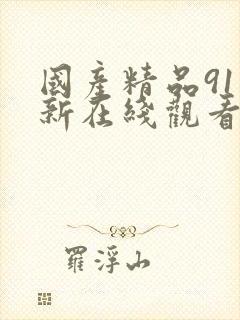 國産精品91
新在綫觀看
羅浮山